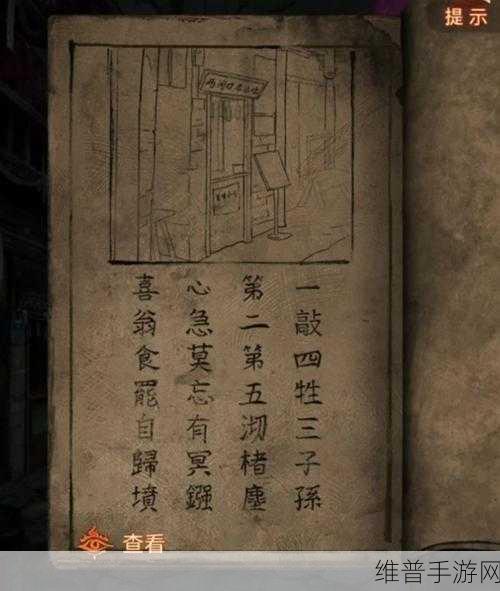 提示
一敲四牲三子孫
第二第五沏楮塵
心急莫忘有冥鏹
喜翁食罷自歸墳
查看
维普手游网